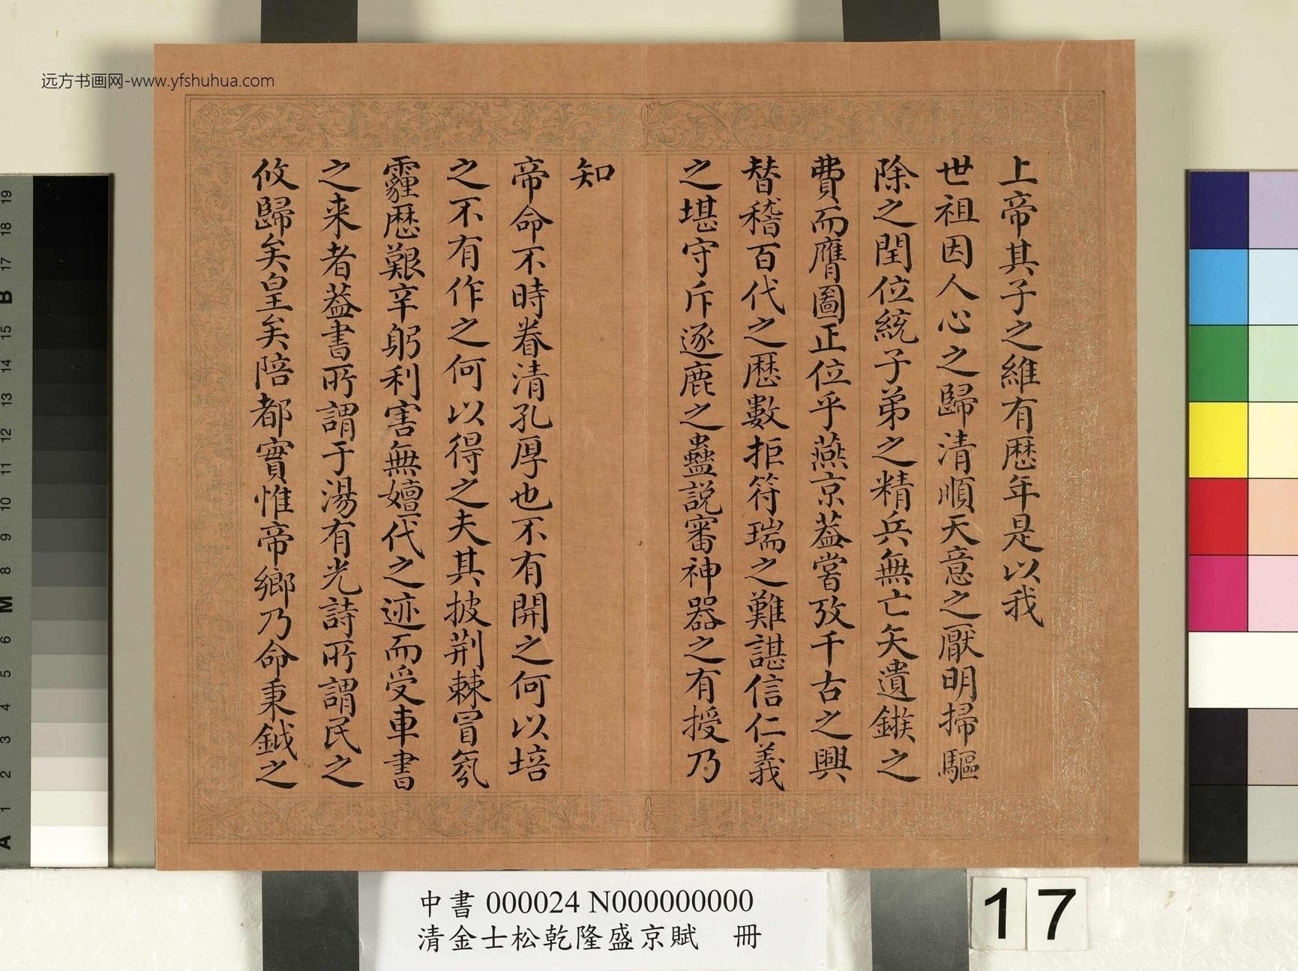 远方书画网-www.yfshuhua.com
上帝其子之維有歷年是以我
世祖因人心之歸清順天意之厭明掃驅
除之閏位統子弟之精兵無亡矢遺鏃之
費而膺圖正位乎燕京葢嘗攷千古之興
替稽百代之歷數拒符瑞之難諶信仁義
之堪守斥逐鹿之蠱説審神器之有授乃
知
帝命不時眷清孔厚也不有開之何以培
之不有作之何以得之夫其披荆棘冒氛
霾歷艱辛躬利害無嬗代之迹而受車書
之来者葢書所謂于湯有光詩所謂民之
攸歸矣皇矣陪都實惟帝鄉乃命秉鉞之
中書 000024 N000000000
清金士松乾隆盛京賦 冊
17
19
18
17
B
15
14
13
12
11
10
9
8
M
6
5
4
3
2
1
A